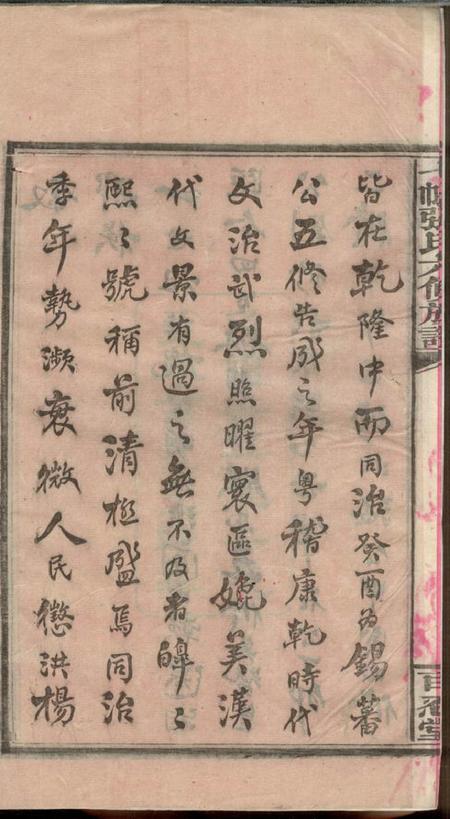 張氏六修族譜
百忍堂
皆在乾隆中而同治癸酉為錫蕃
公五修告成之年粤稽康乾時代
文治武烈照曜寰區媲美漢
代文景有過之無不及者皡〻
熙〻號稱前清極盛焉同治
季年勢瀕衰微人民懲洪楊